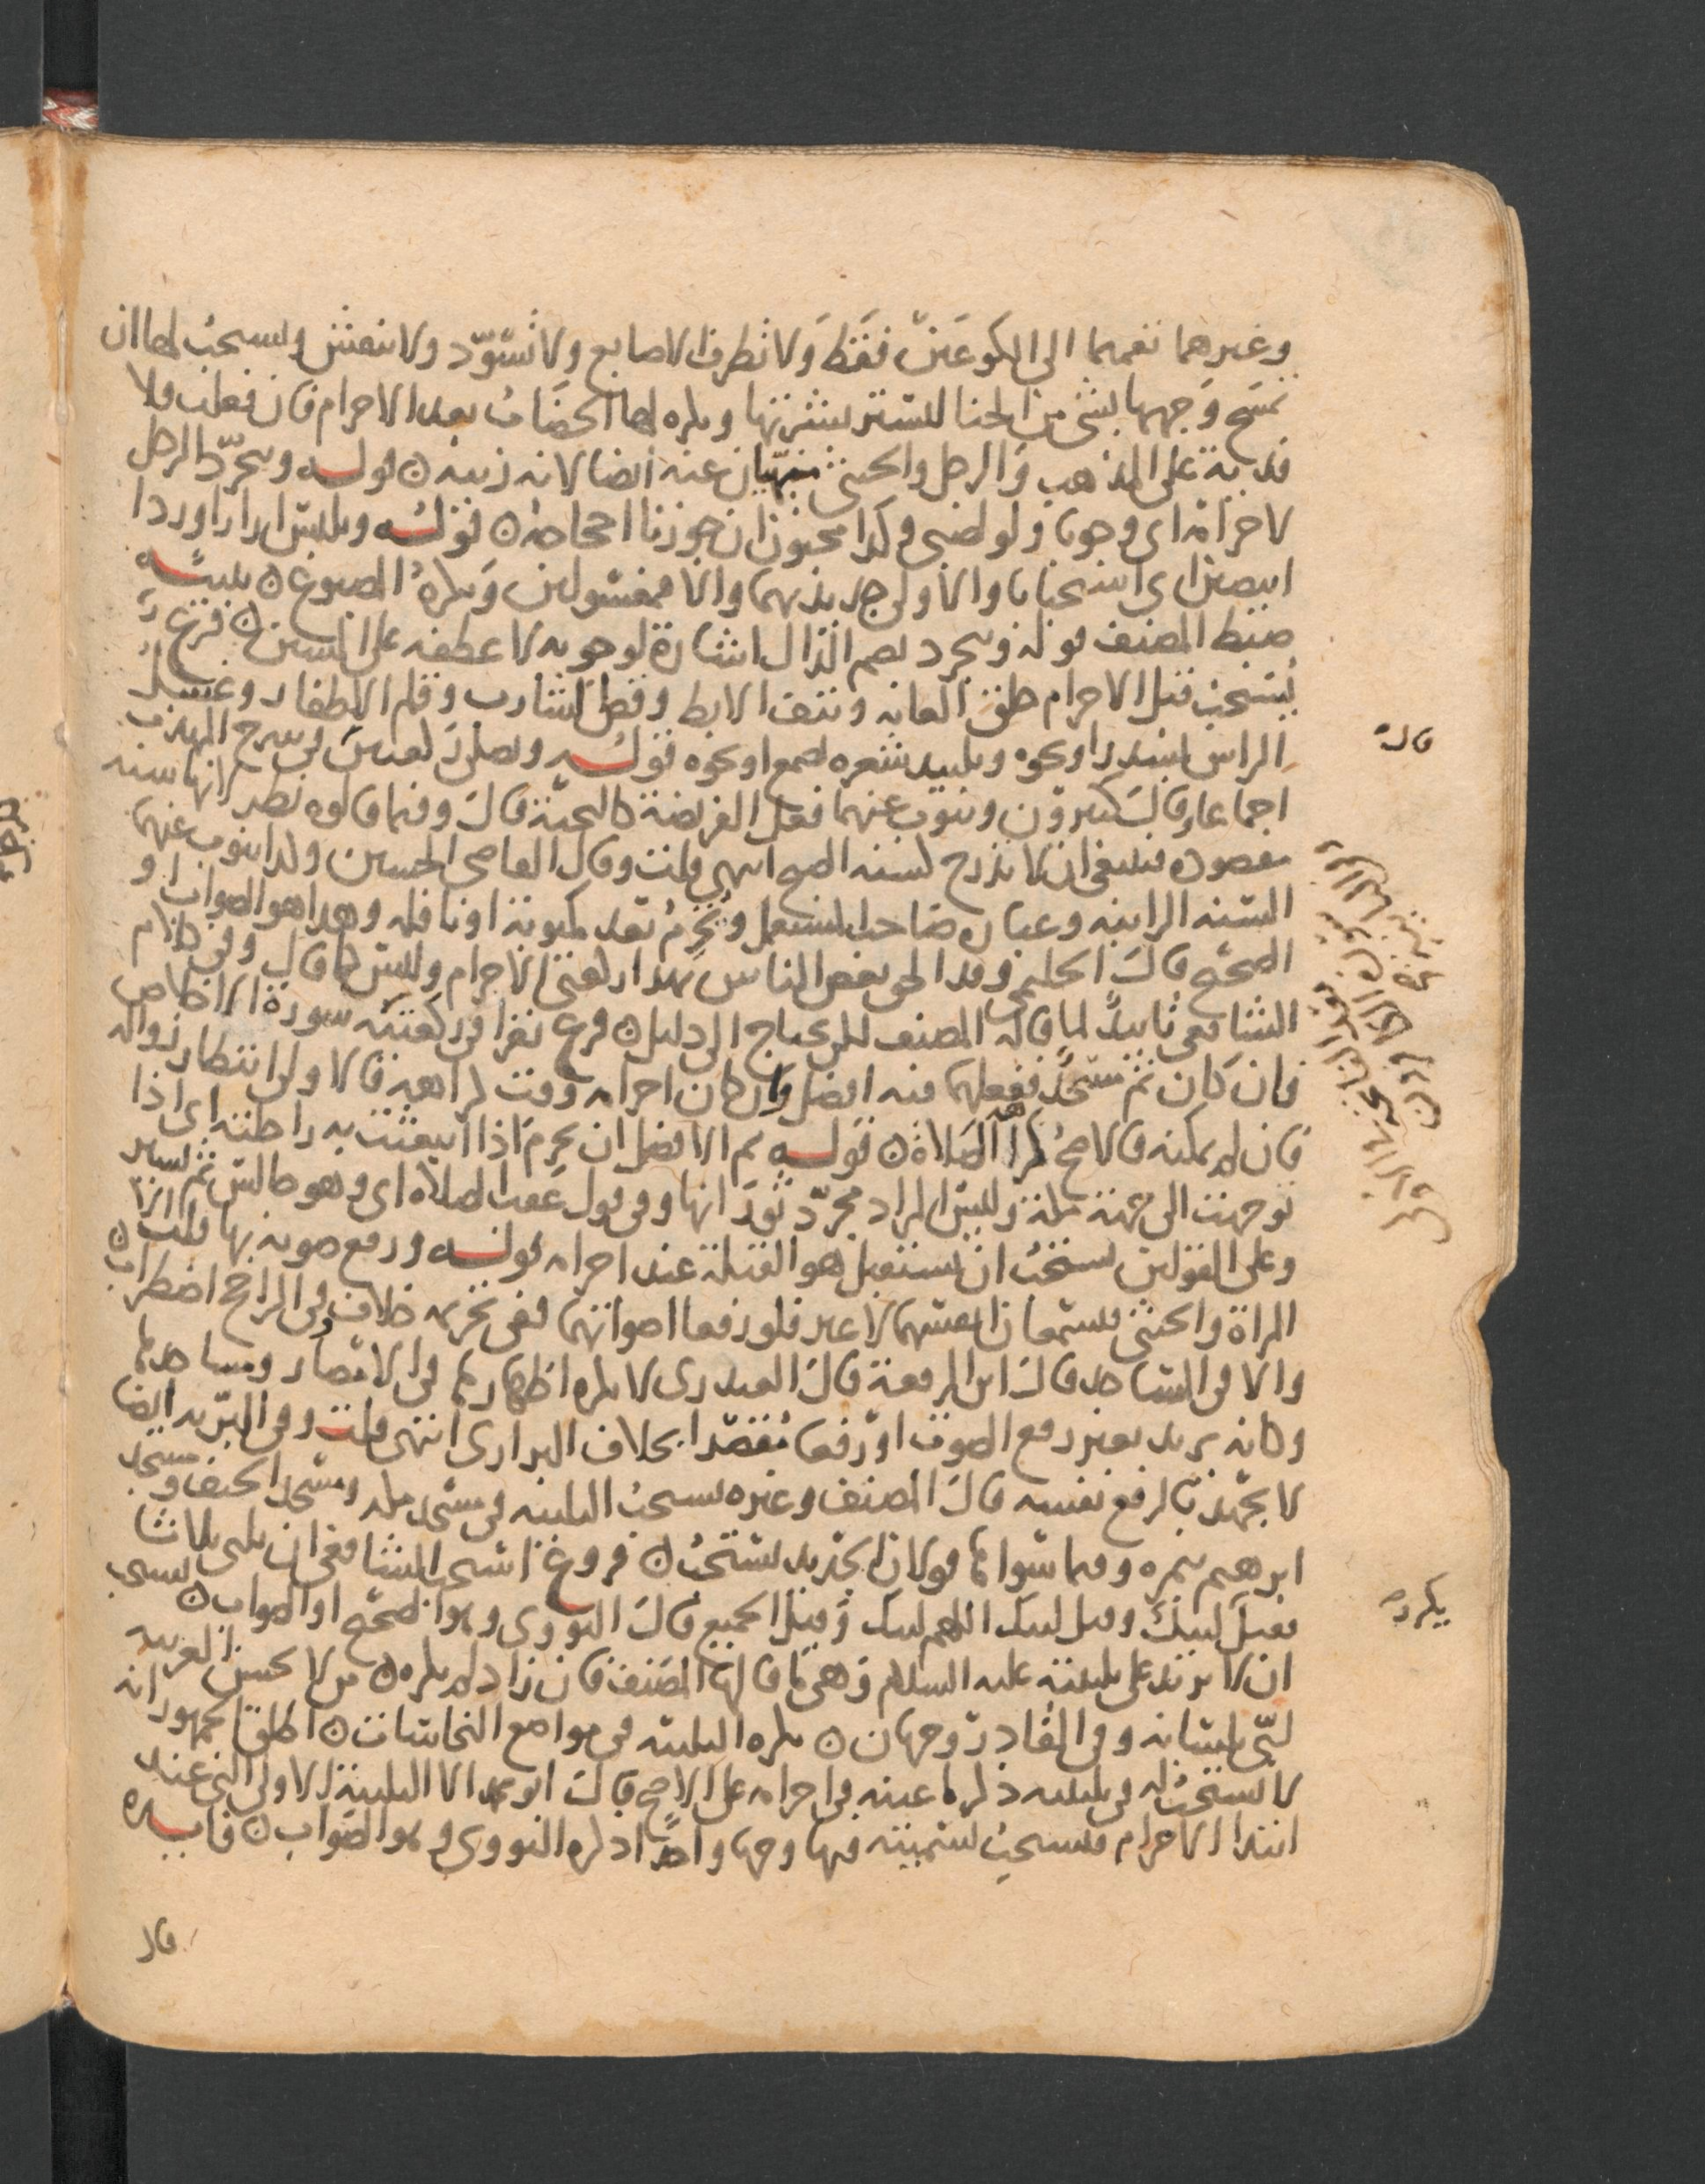 وغيرهما تعميما الى الكوعين فقط ولا تطرف الاصابع ولا تسود ولا تنقش ويستحب لها ان
تمسح وجهها بشي من الحنا لتستتر بشرتها ويكره لها الخضاب بعد الاحرام فان فعلت فلا
فدية على المذهب والرجل والخنثى منهيان عنه ايضا لانه زينه ن قوله ويتجرد الرجل
لاحرامه اي وجوبا ولو لصبي وكذا مجنون ان جوزنا احجاجه ن قوله ويلبس ازارا وردا
ابيضين اي استحبابا والاولى جديدهما والا فمغسولين ويكره المصبوغ ن
ضبط المصنف قوله ويتجرد بضم الدال اشارة لوجوبه لا عطفه على السنن ن فرع
يستحب قبل الاحرام حلق العانه ونتف الابط وقص الشارب وقلم الاظفار وغسل
الراس بسدر او نحوه وتلبيد شعره بصمغ او نحوه قوله ويصلي ركعتين في شرح المهذب
اجماعا وقال كثيرون وينوب عنهما فعل الفريضة كالتحية قال وفيما قالوه نظر لانها سنه
مقصوده فينبغي ان لا تندرج كسنه الصبح انتهى قلت وقال القاضي الحسين ولا ينوب عنهما
السنه الراتبه وعباره صاحب ويحرم بعد مكتوبة او نافله وهذا هو الصواب او
الصحيح قال الحليمي وقد الحق بعض الناس بهذا ركعتي الاحرام وليس كما قال وفي كلام
الشافعي تاييد لما قاله المصنف لكن يحتاج الى دليل ن فرع يقرا في ركعتيه سورة الاخلاص
فان كان ثم مسجد ففعلهما فيه افضل وان كان احرامه وقت كراهية فالاولى انتظار زواله
فان لم يمكنه فالاصح كراهة الصلاة ن قوله ثم الافضل ان يحرم اذا انبعثت به راحلته اي اذا
توجهت الى جهة مكة وليس المراد مجرد ثورانها وفي قول عقب الصلاة اي وهو جالس ثم يسير
وعلى القولين يستحب ان يستقبل هو القبلة عند احرامه قوله ورفع صوته بها قلت
المراة والخنثى يسمعان انفسهما لا غير فلو رفعا اصواتهما ففي تحريمه خلاف وفي الراجح اضطراب ن
والا في المساجد قال ابن الرفعة قال العبدري لا يكره اظهارها في الامصار ومساجدها
وكانه يريد بغير رفع الصوت او رفعا مقتصدا بخلاف البراري انتهى قلت وفي البرية ايضا
لا يجهد بالرفع نفسه قال المصنف وغيره يستحب التلبيه في مسجد مكه ومسجد الخيف ومسجد
ابرهيم بنمره وفيما سواها قولان الجديد يستحب ن فروع استحب الشافعي ان يلبي ثلاثا
فقيل لبيك وقيل لبيك اللهم لبيك وقيل الجميع قال النووي وهو الصحيح او الصواب ن يستحب
ان لا يزيد على تلبيته عليه السلام وهي ما قالها المصنف فان زاد لم يكره ن من لا يحسن العربيه
لبى بلسانه وفي القادر وجهان ن يكره التلبيه في مواضع النجاسات ن اطلق الجمهور انه
لا يستحب له في تلبيته ذكر ما عينه في احرامه على الاصح قال ابو محمد الا التلبية الاولى التي عند
ابتدا الاحرام فيستحب تسميته فيها وجها واحدا ذكره النووي وهو الصواب ن
قاله
يكره
قال